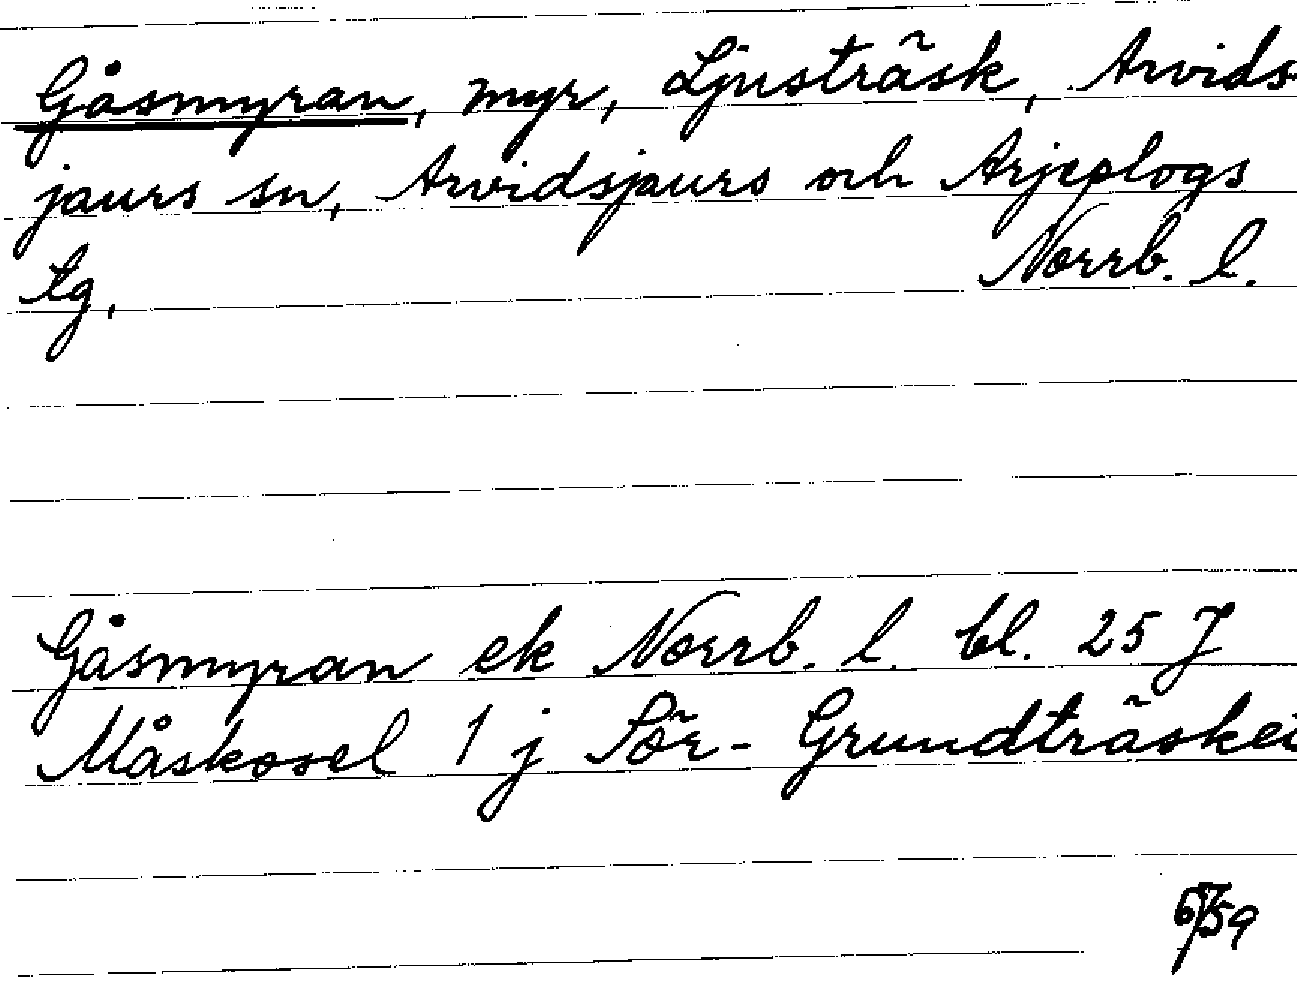 Gåsmyran, myr, Ljusträsk, Arvids-
jaurs sn, Arvidsjaurs och Arjeplogs
tg, Norrb. l.
Gåsmyran ek Norrb. l. bl. 25 J
Måskosel 1 j Sör-Grundträsket